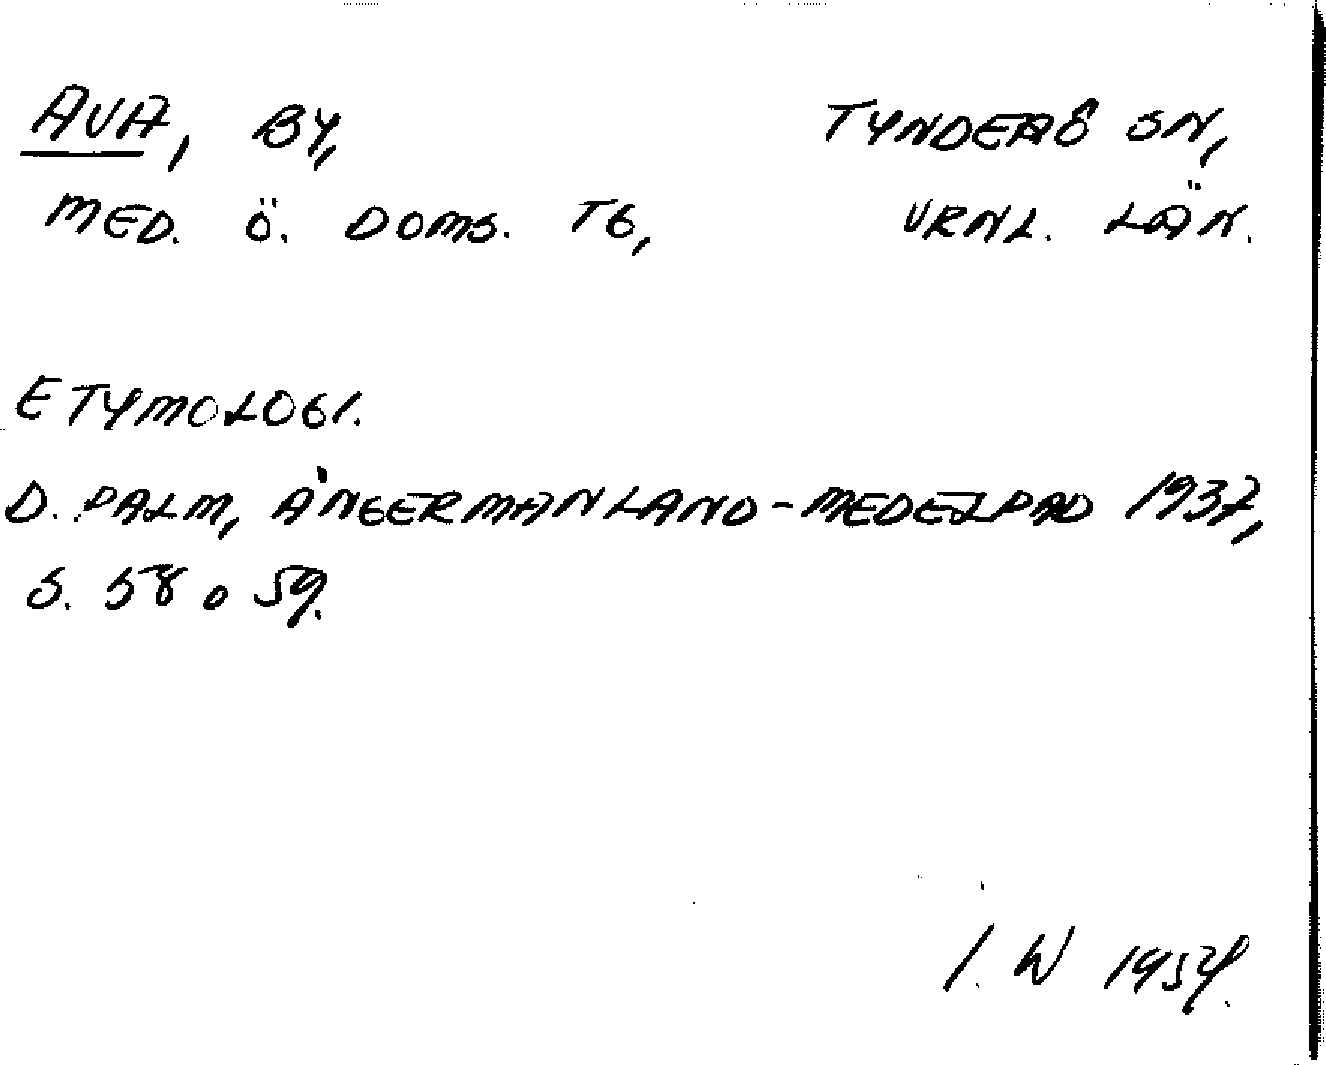 AVA, BY, TYNDERÖ SN,
MED. Ö. DOMS. TG, VRNL. LÄN.
ETYMOLOGI.
D. PALM, ÅNGERMANLAND-MEDELPAD 1937,
S. 58 o 59.
I. W